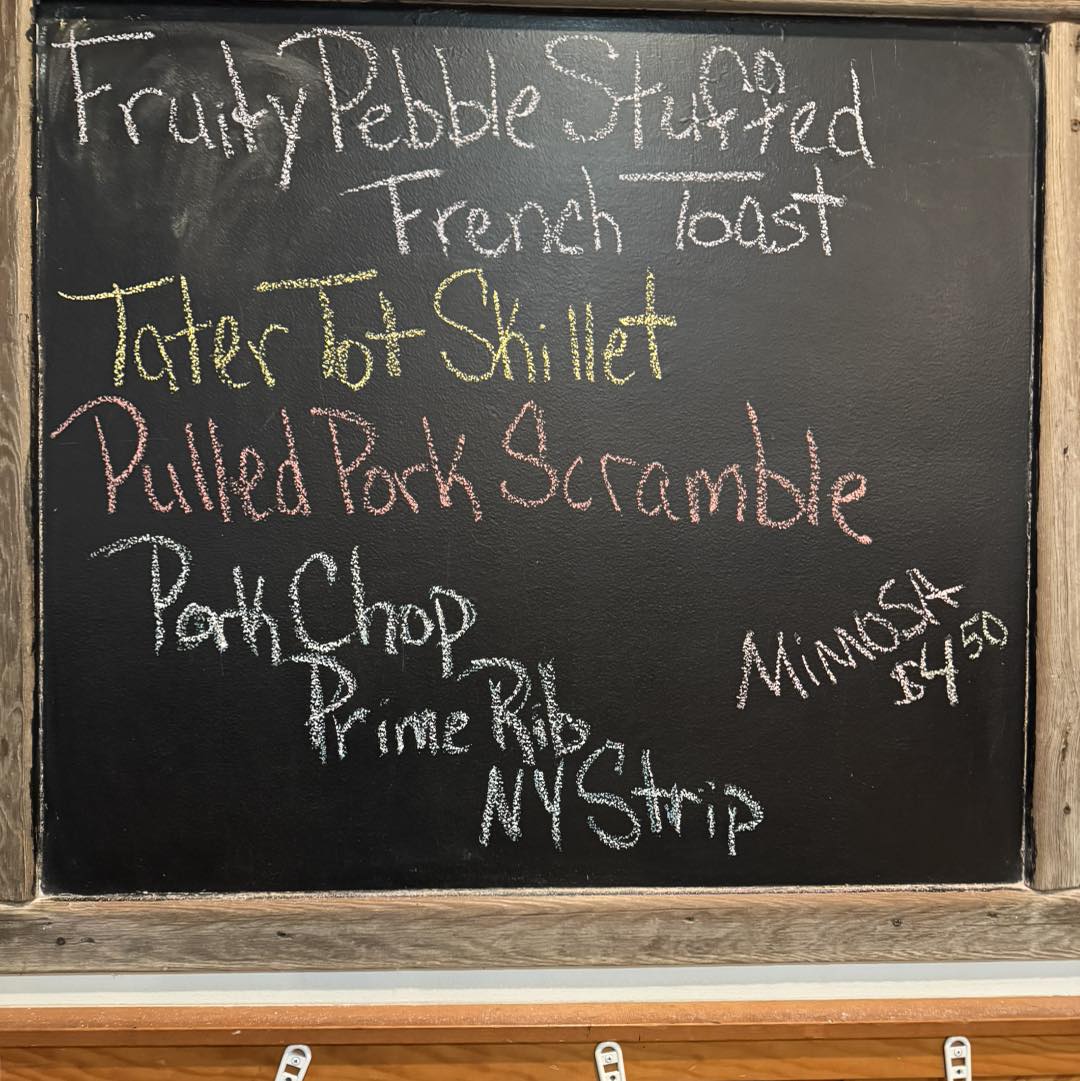 Fruity Pebble Stuffed
French Toast
Tater Tot Skillet
Pulled Pork Scramble
Pork Chop
Prime Rib
NY Strip
MiMOSA
$4.50